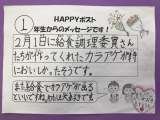 HAPPYポスト
1年生からのメッセージです!
2月1日に給食調理委員さん
たちが作ってくれたカラアゲが特
においしかったそうです。
また給食でカラアゲが出る
といいですね。